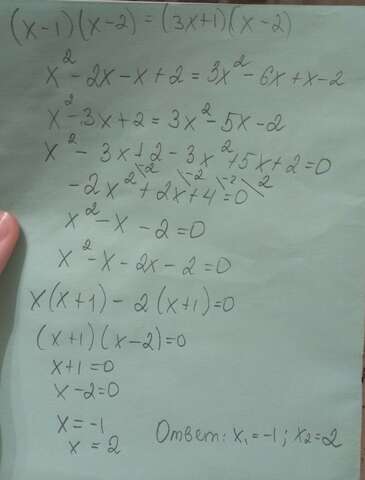 (x-1)(x-2)=(3x+1)(x-2)
x²-2x-x+2=3x²-6x+x-2
x²-3x+2=3x²-5x-2
x²-3x+2-3x²+5x+2=0
-2x²+2x+4=0
-2 -2 -2 2
x²-x-2=0
x²-x-2x-2=0
x(x+1)-2(x+1)=0
(x+1)(x-2)=0
x+1=0
x-2=0
x=-1
x=2 Ответ: x₁=-1; x₂=2